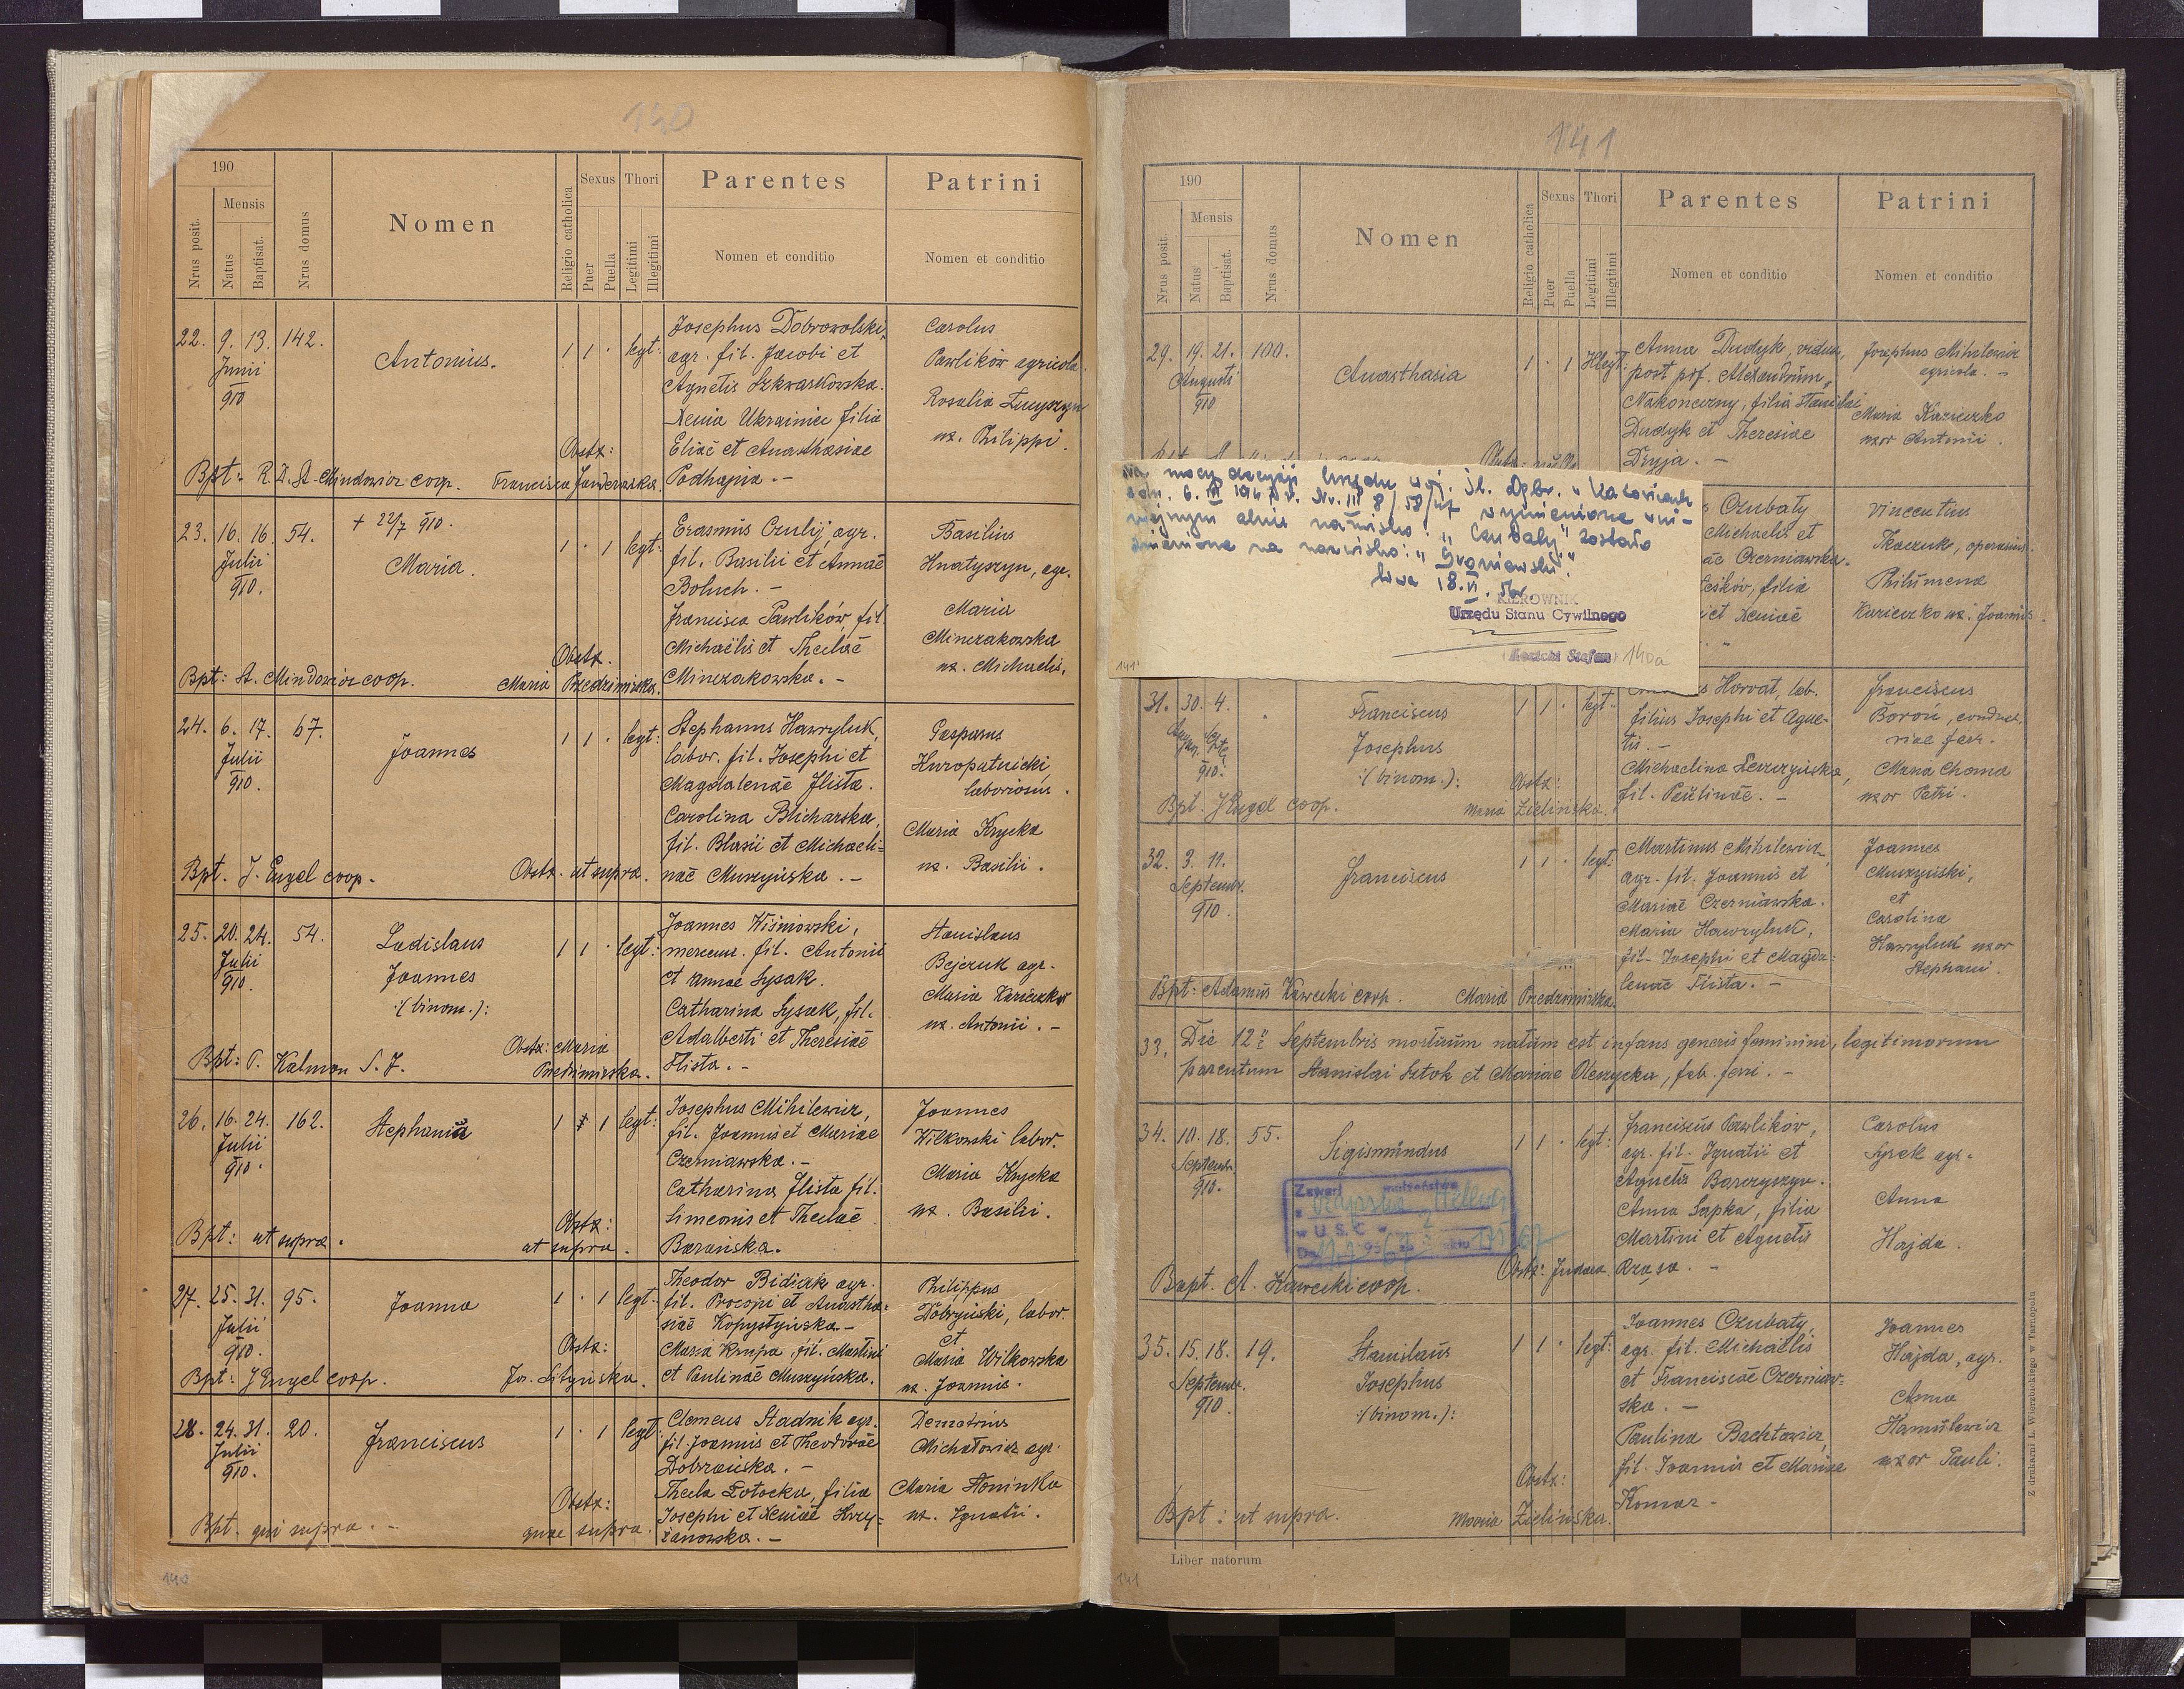 140
190
Nrus posit.
Mensis
Natus
Baptisat.
Nrus domus
Nomen
Religio catholica
Sexus
Puer
Puella
Thori
Legitimi
Illegitimi
Parentes
Nomen et conditio
Patrini
Nomen et conditio
22. 9. 13. 142.
Junii
910
Antonius.
1 1 · legt:
Josephus Dobrowolski,
agr. fil. Jacobi et
Agnetis Szkwarkowska.
Xenia Ukrainiec filia
Eliae et Anasthasiae
Podhajna. -
Carolus
Pawlików agricola.
Rosalia Łucyszyn
ux. Philippi.
Obstx:
Bpt: R. D. St. Mindowicz coop. Francisca
23. 16. 16. 54.
Julii
910.
+ 22/7 910.
Maria.
1 · 1 legt:
Erasmus Czulij, agr.
fil. Basilii et Annae
Boluch. -
Francisca Pawlików, fil.
Michaelis et Theclae
Minczakowska. -
Basilius
Hnatyszyn, agr.
Maria
Minczakowska
ux. Michaelis.
Obstx.
Bpt: St. Mindowicz coop. Maria Przedzimirska.
24. 6. 17. 67.
Julii
910.
Joannes
1 1 · legt:
Stephanus Hawryluk,
labor. fil. Josephi et
Magdalenae Flista.
Carolina Blicharska,
fil. Blasii et Michaeli-
nae Muszyńska. -
Gasparus
Kuropatnicki,
laboriosus.
Maria Krycka
ux. Basilii.
Bpt. J. Engel coop. Obstx. ut supra.
25. 20. 24. 54.
Julii
910.
Ladislaus
Joannes
:(binom.):
1 1 · legt:
Joannes Wiśniowski,
mercenr. fil. Antonii
et Annae Sysak.
Catharina Sysak, fil.
Adalberti et Theresiae
Flista. -
Stanislaus
Bejczuk agr.
Maria Kariczko
ux. Antonii. -
Obstx: Maria
Przedzimirska.
Bpt: P. Kalmon S. J.
26. 16. 24. 162.
Julii
910.
Stephania
1 1 1 legt:
Josephus Mihilewicz,
fil. Joannis et Mariae
Czerniawska. -
Catharina Flista fil.
Simeonis et Theclae
Barańska.
Joannes
Wilkowski labor.
Maria Krycka
ux. Basilii.
Obstx:
ut supra.
Bpt: ut supra.
27. 25. 31. 95.
Julii
910.
Joanna
1 · 1 legt:
Theodor Bidiak agr.
fil. Procopi et Anastha-
siae Kopystyńska. -
Maria Krupa, fil. Martini
et Paulinae Muszyńska.
Philippus
Dobryński, labor.
et
Maria Wilkowska
ux. Joannis.
Obstx:
Bpt: J Engel coop. Jos. Lityńska.
28. 24. 31. 20.
Julii
910.
Franciscus
1 · 1 legt:
Clemens Stadnik agr.
fil. Joannis et Theodorae
Dobrzańska. -
Thecla Łotocka, filia
Josephi et Xeniae Krzy-
żanowska. -
Demetrius
Michałowicz agr.
Maria Słoninka
ux. Ignatii.
Obstx:
quae supra.
Bpt. qui supra. -
140
141
190
Nrus posit.
Mensis
Natus
Baptisat.
Nrus domus
Nomen
Religio catholica
Sexus
Puer
Puella
Thori
Legitimi
Illegitimi
Parentes
Nomen et conditio
Patrini
Nomen et conditio
29. 19. 21. 100.
Augusti
910
Anasthasia
1 · 1 Illegt:
Anna Dudyk, vidua,
post pof. Alexandrum
Nakoneczny, filia Stanislai
Dudyk et Theresiae
Dryja. -
Josephus Mihilewicz
agricola. -
Maria Kariczko
uxor Antonii.
Na mocy decyzji Urzędu Woj. Śl. Dąbr. w Katowicach
z dn. 6. III 1947 r. Nr. III 8/58/47 wymienione w ni-
niejszym akcie nazwisko: "Czubaty" zostało
zmienione na nazwisko: "Groniowski".
Lwa 18. VI. 56r.
KIEROWNIK
Urzędu Stanu Cywilnego
Stefan
140a
141
Czubaty
Michaelis et
Czerniawska.
filia
et Xeniae
Vincentius
Tkaczuk, operarius.
Philumena
Kariczko ux. Joannis.
31. 30. 4.
910.
Franciscus
Josephus
:(binom.):
1 1 · legt:
Horvat, lab.
filius Josephi et Agne-
tis. -
Michaelina Leszczyńska,
fil. Paulinae. -
Franciscus
Boroń, conduct.
viae ferr.
Maria Choma
uxor Petri.
Obstx:
Bpt. J Engel coop. Maria Zielińska.
32. 3. 11.
Septembr.
910.
Franciscus
1 1 · legt:
Martinus Mihilewicz,
agr. fil. Joannis et
Mariae Czerniawska.
Maria Hawryluk,
fil. Josephi et Magda-
lenae Flista. -
Joannes
Muszyński,
et
Carolina
Hawryluk uxor
Stephani.
Bpt: Adamus Kawecki coop. Maria Przedzimirska
33. Die 12ae Septembris mortuum natum est infans generis feminini, legitimorum
parentum Stanislai Sztok et Mariae Oleszycka, fab. ferri. -
34. 10. 18. 55.
Septembr.
910.
Sigismundus
1 1 · legt:
Franciscus Pawlików,
agr. fil. Ignatii et
Agnetis Barczyszyn.
Anna Sapka, filia
Martini et Agnetis
Rząsa. -
Carolus
Syrek agr.
Anna
Hajda.
Zawarł małżeństwo
z
w U.S.C. w
Bapt. A. Kawecki coop. Obstx: Judaea.
35. 15. 18. 19.
Septembr.
910.
Stanislaus
Josephus
:(binom.):
1 1 · legt:
Joannes Czubaty,
agr. fil. Michaelis
et Franciscae Czerniaw-
ska. -
Paulina Bachtowicz,
fil. Joannis et Mariae
Komar -
Joannes
Hajda, agr.
Anna
Hamulewicz
uxor Pauli.
Obstx:
Bpt: ut supra. Maria Zielińska.
Liber natorum
Z drukarni L. Wierzbickiego w Tarnopolu
141